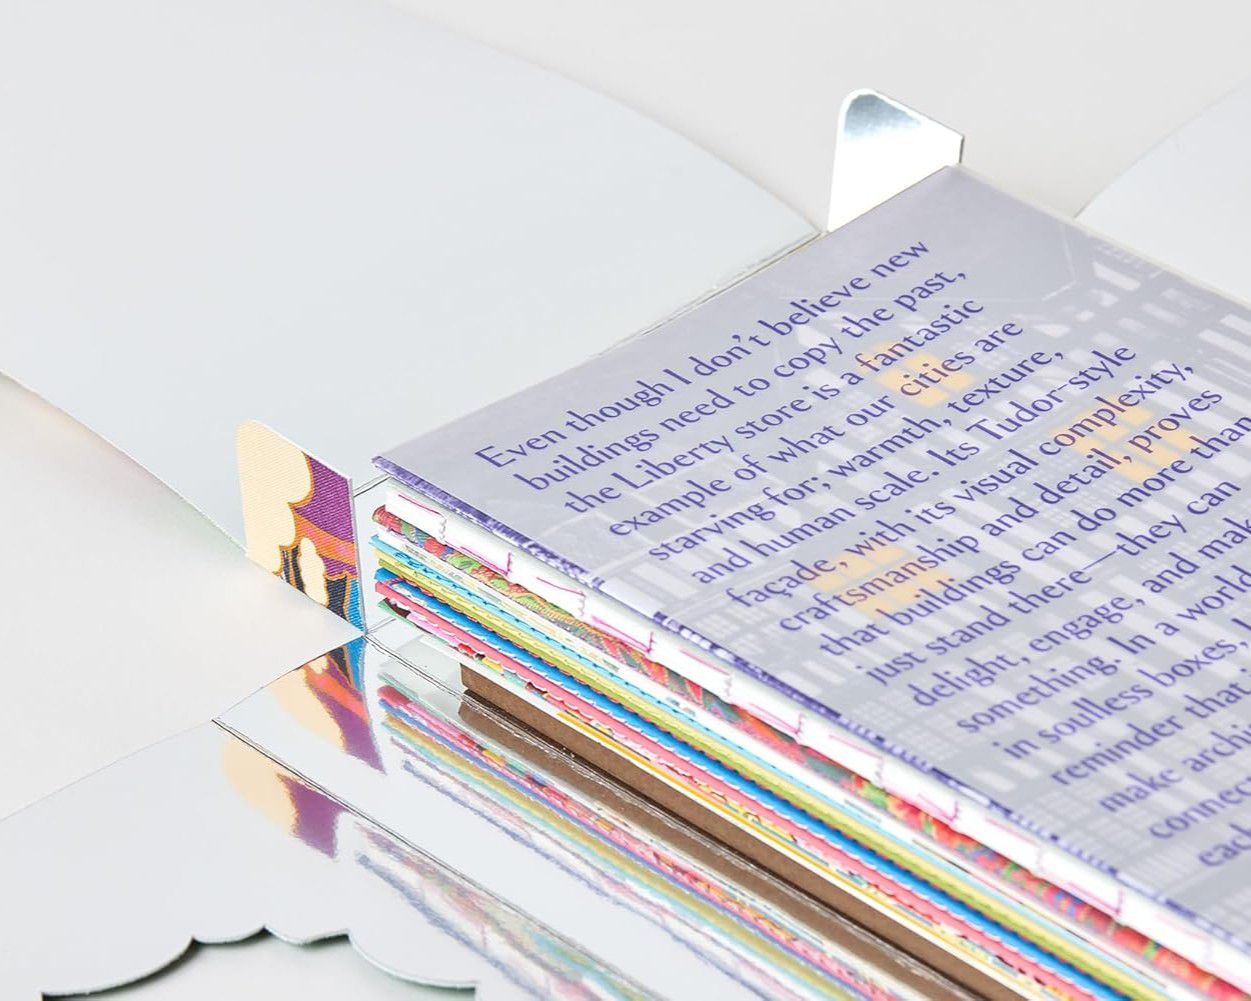 Even though I don't believe new
buildings need to copy the past,
the Liberty store is a fantastic
example of what our cities are
starving for; warmth, texture,
and human scale. Its Tudor-style
façade, with its visual complexity,
craftsmanship and detail, proves
that buildings can do more than
just stand there—they can
delight, engage, and make
something. In a world
in soulless boxes,
reminder that
make archi
connec
each